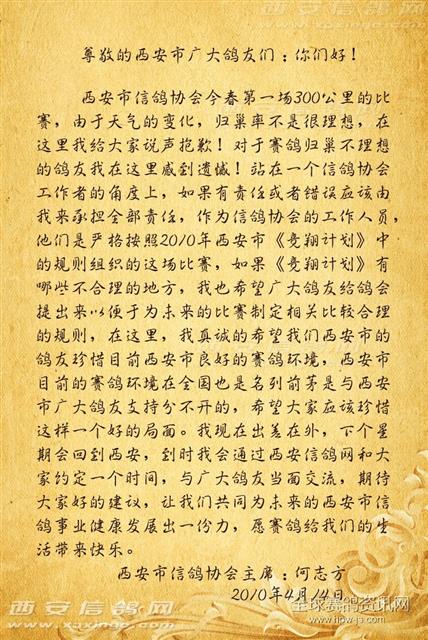 西安信鸽网
www.xaxinge.com
尊敬的西安市广大鸽友们：你们好！
西安市信鸽协会今春第一场300公里的比
赛，由于天气的变化，归巢率不是很理想，在
这里我给大家说声抱歉！对于赛鸽归巢不理想
的鸽友我在这里感到遗憾！站在一个信鸽协会
工作者的角度上，如果有责任或者错误应该由
我来承担全部责任，作为信鸽协会的工作人员，
他们是严格按照2010年西安市《竞翔计划》中
的规则组织的这场比赛，如果《竞翔计划》有
哪些不合理的地方，我也希望广大鸽友给鸽会
提出来以便于为未来的比赛制定相关比较合理
的规则，在这里，我真诚的希望我们西安市的
鸽友珍惜目前西安市良好的赛鸽环境，西安市
目前的赛鸽环境在全国也是名列前茅是与西安
市广大鸽友支持分不开的，希望大家应该珍惜
这样一个好的局面。我现在出差在外，下个星
期会回到西安，到时我会通过西安信鸽网和大
家约定一个时间，与广大鸽友当面交流，期待
大家好的建议，让我们共同为未来的西安市信
鸽事业健康发展出一份力，愿赛鸽给我们的生
活带来快乐。
西安市信鸽协会主席：何志方
2010年4月14日
西安信鸽网
全球赛鸽资讯网